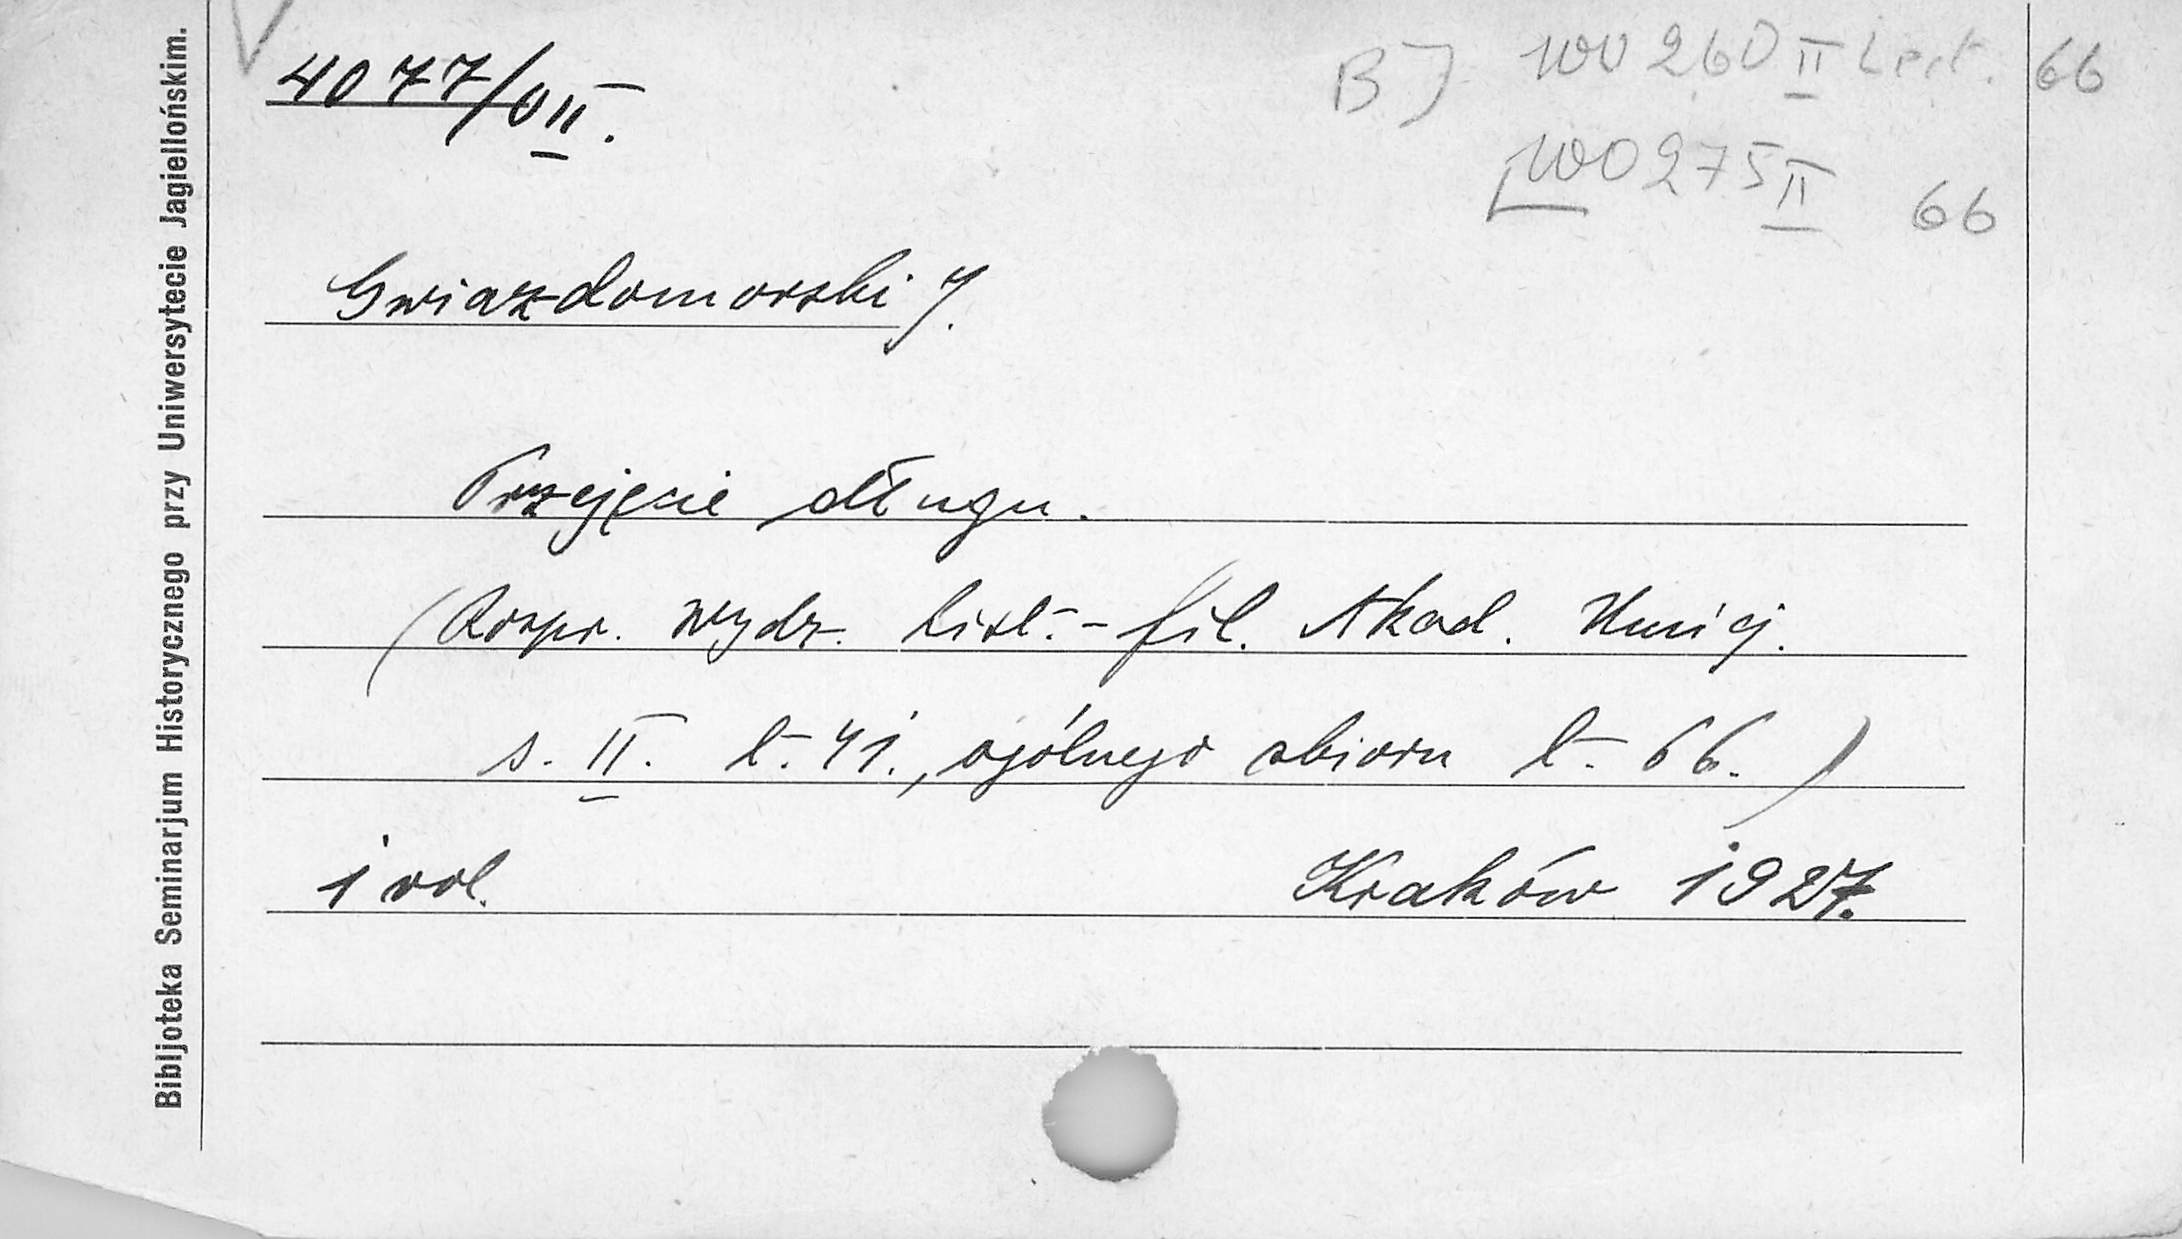 Bibljoteka Seminarjum Historycznego przy Uniwersytecie Jagiellońskim.
4077/II.
BJ 100260 II Lect. 66
100275 II 66
Gwiazdomorski J.
Przejęcie długu.
(Rozpr. wydz. hist.-fil. Akad. Umiej.
s. II. t. 41., ogólnego zbioru t. 66.)
1 vol. Kraków 1927.